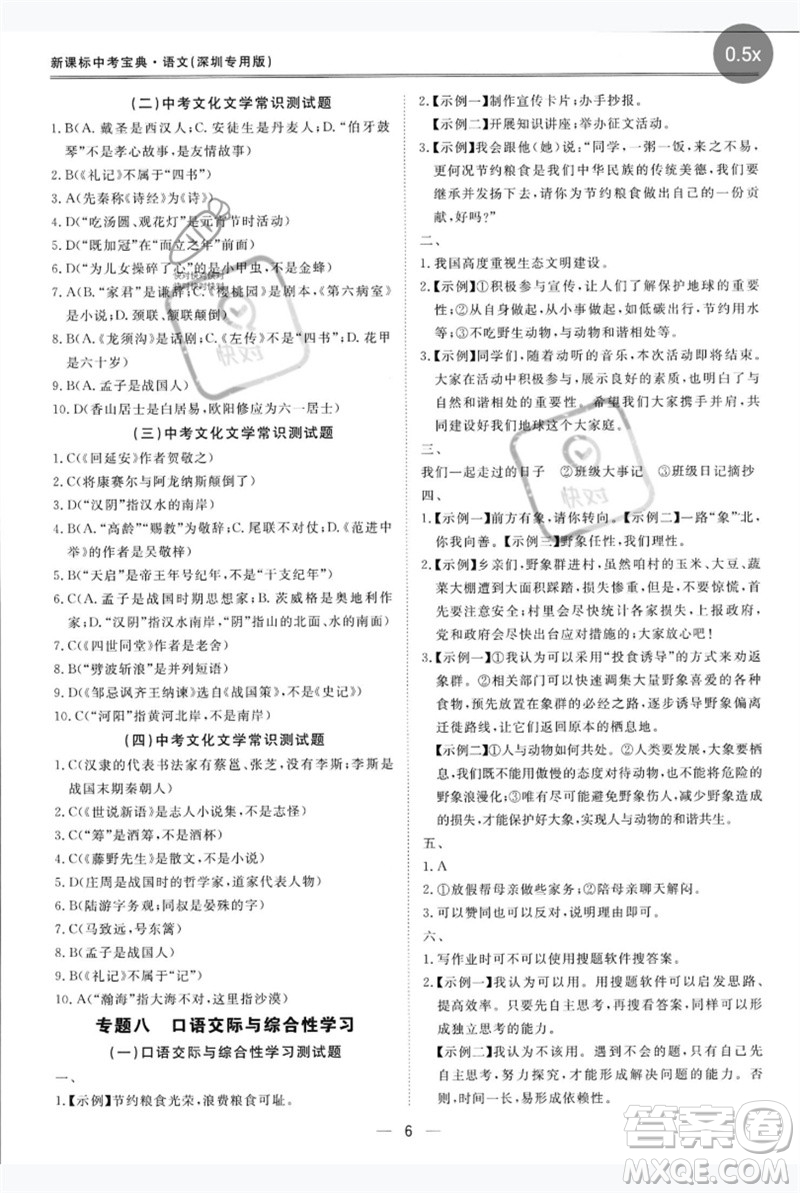 新课标中考宝典·语文(深圳专用版)
0.5x
(二)中考文化文学常识测试题
1. B(A. 戴圣是西汉人;C. 安徒生是丹麦人;D.“伯牙鼓
琴”不是孝心故事,是友情故事)
2. B(《礼记》不属于“四书”)
3. A(先秦称《诗经》为《诗》)
4. D(“吃汤圆、观花灯”是元宵节时活动)
5. D(“既加冠”在“而立之年”前面)
6. D(“为儿女操碎了心”的是小甲虫,不是金蜂)
7. A(B.“家君”是谦辞;C.《樱桃园》是剧本,《第六病室》
是小说;D. 颈联、颔联颠倒)
8. B(A.《龙须沟》是话剧;C.《左传》不是“四书”;D. 花甲
是六十岁)
9. B(A. 孟子是战国人)
10. D(香山居士是白居易,欧阳修应为六一居士)
(三)中考文化文学常识测试题
1. C(《回延安》作者贺敬之)
2. C(将康赛尔与阿龙纳斯颠倒了)
3. D(“汉阴”指汉水的南岸)
4. B(A.“高龄”“赐教”为敬辞;C. 尾联不对仗;D.《范进中
举》的作者是吴敬梓)
5. B(“天启”是帝王年号纪年,不是“干支纪年”)
6. C(A. 孟子是战国时期思想家;B. 茨威格是奥地利作
家;D.“汉阴”指汉水南岸,“阴”指山的北面、水的南面)
7. C(《四世同堂》作者是老舍)
8. B(“劈波斩浪”是并列短语)
9. D(《邹忌讽齐王纳谏》选自《战国策》,不是《史记》)
10. D(“河阳”指黄河北岸,不是南岸)
(四)中考文化文学常识测试题
1. C(汉隶的代表书法家有蔡邕、张芝,没有李斯;李斯是
战国末期秦朝人)
2. C(《世说新语》是志人小说,不是志怪)
3. C(“筹”是酒筹,不是酒杯)
4. C(《藤野先生》是散文,不是小说)
5. D(庄周是战国时的思想家,不是春秋)
6. B(陆游字务观;同叔是晏殊的字)
7. C(A 骑马,B 骑马,D 骑马)
8. B(孟子是战国人)
9. B(《礼记》不属于“记”)
10. A(“瀚海”指大海,不对,这里指沙漠)
专题八 口语交际与综合性学习
(一)口语交际与综合性学习测试题
一、
1.【示例】节约粮食光荣,浪费粮食可耻。
2.【示例一】制作宣传卡片;办手抄报。
【示例二】开展知识讲座;举办征文活动。
3.【示例】我会跟他(她)说:“同学,一粥一饭,来之不易,
更何况节约粮食是我们中华民族的传统美德,我们要
继承并发扬下去,请你为节约粮食做出自己的一份贡
献,好吗?”
二、
1. 我国高度重视生态文明建设。
2.【示例】①积极参与活动,让人们了解保护地球的重要
性。②从自身做起,从小事做起,保护环境,节约用
水。③不吃野生动物,与动物和谐相处。
3.【示例】同学们,随着动听的音乐,本次活动即将结束。
大家在活动中积极参与,展示了良好的素质,也感受到了与
自然和谐相处的重要性。希望我们大家携手并肩,共
同建设好我们地球这个大家庭。
三、
我们一起走过的日子 ②班级大事记 ③班级日记摘抄
四、
1.【示例一】前方有象,请你转向。【示例二】一路“象”
北,安全相随。【示例三】野象任性,我们理性。
2.【示例】乡亲们,野象群进村,虽然咱村的玉米、大豆、蔬
菜大棚遭到大面积踩踏,损失惨重,但一定不要惊慌,
更不要伤害大象;村里会尽快统计各家损失,上报政府,
党和政府会尽快出台应对措施的;大家放心吧!
3.【示例一】①我认为可以采用“投食诱导”的方式来劝返
象群。②相关部门可以快速调集大量野象喜爱的食
物,投放于象群的必经之路,逐步诱导野象偏离
迁徙路线,让它们返回原本的栖息地。
【示例二】①人与动物如何和谐共处。②发展中,大象要得
到尊重,我们不能用傲慢的态度对待动物,也不能将危险的
野象浪漫化;③唯有在尽可能了解野象、减少彼此造成
的损失,才能保护好大象,实现人与动物的和谐共生。
五、
1. A
2. ①放假帮母亲做些家务;②陪母亲聊天解闷。
3. 可以赞同也可以反对,说明理由即可。
六、
1. 写作业时可不可以使用搜题软件搜答案。
2.【示例一】我认为可以用。用搜题软件可以启发思路、
提高效率。只要先自主思考,再进行搜索,同样可以形
成独立思考的能力。
【示例二】我认为不可以用。遇到不会的题,不先自主
思考,而是用软件去搜,久而久之会产生依赖,影响自
己独立思考的能力。
6
快对
快对
答案圈
MXQE.COM